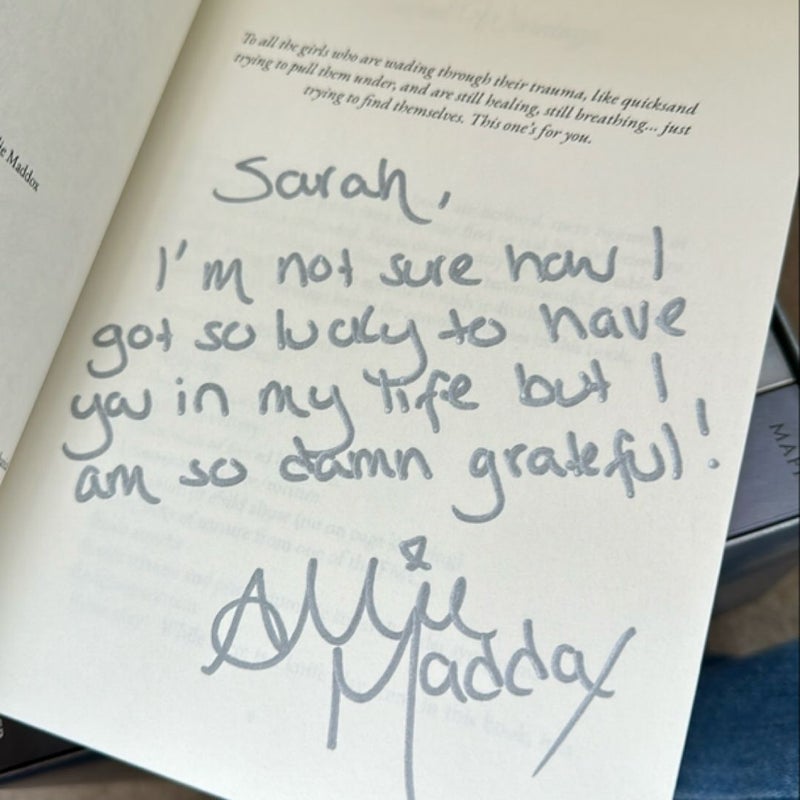 To all the girls who are wading through their trauma, like quicksand
trying to pull them under, and are still healing, still breathing... just
trying to find themselves. This one's for you.
Sarah,
I'm not sure how I
got so lucky to have
you in my life but I
am so damn grateful!
Allie
Maddox
ie Maddox
MAD